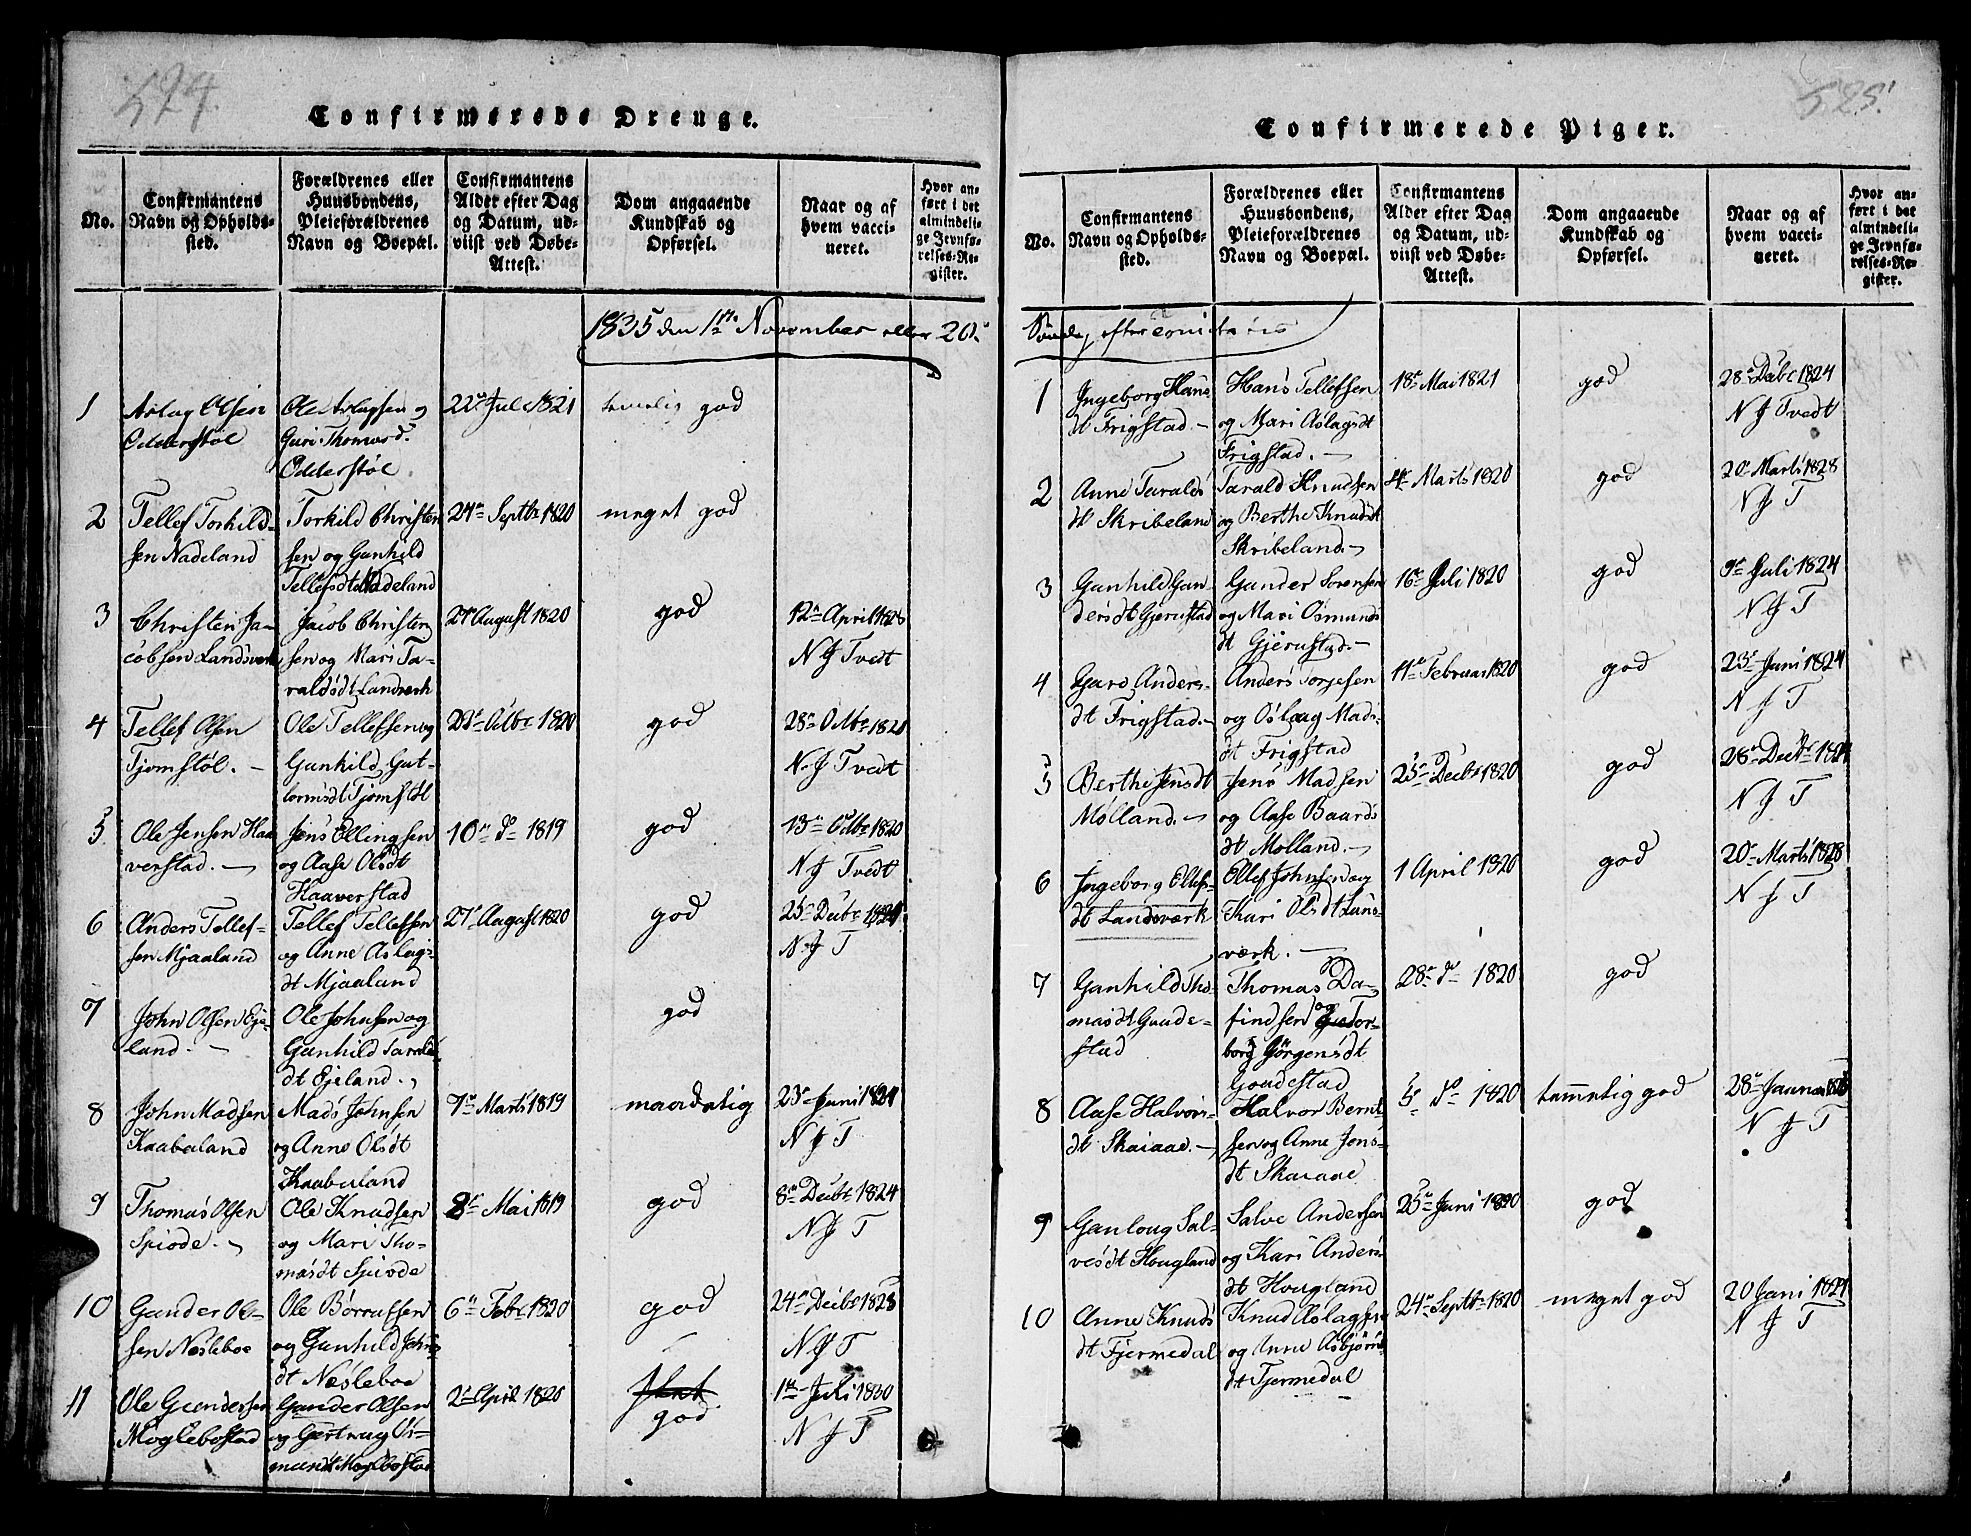 524.
Confirmerede Drenge.
No.
Confirmantens
Navn og Opholds-
sted.
Forældrenes eller
Huusbondens,
Pleieforældrenes
Navn og Boepæl.
Confirmantens
Alder efter Dag
og Datum, ud-
viist ved Døbe-
Attest.
Dom angaaende
Kundskab og
Opførsel.
Naar og af
hvem vacci-
neret.
Hvor an-
ført i det
almindeli-
ge Jevnfø-
relses-Re-
gister.
1835 den 1ste November eller 20.
1
Aslag Olsen
Odderstøl
Ole Aslagsen og
Guri Thomasd.
Odderstøl
22de Juli 1821
temelig god
2
Tellef Torkild-
sen Nadeland
Torkild Christen
sen og Gunhild
Tellefsdt Nadeland
24de Septbr 1820
meget god
3
Christen Ja-
cobsen Landsverk
Jacob Christen
sen og Mari Ta-
raldsdt Landverk
27 August 1820
god
12te April 1828
N J Tvedt
4
Tellef Olsen
Tjomstøl.
Ole Tellefsen og
Gunhild Gut-
tormsdt Tjomstøl
23de Octbr 1820
god
28de Octbr 1821
N J Tvedt
5
Ole Jensen Haa
verstad.
Jens Ellingsen
og Aase Olsdt
Haaverstad
10de do 1819
god
13de Octbr 1820
N J Tvedt
6
Anders Tellef-
sen Mjaaland
Tellef Tellefsen
og Anne Aslag-
dt Mjaaland
27 August 1820
god
23de Decbr 1824
N J T
7
John Olsen Eje-
land.
Ole Johnsen og
Gunhild Tarald
dt Ejeland.
god
8
John Madsen
Kaabeland
Mads Johnsen
og Anne Olsdt
Kaabeland
7de Marts 1819
maadelig
23de Juni 1824
N J T
9
Thomas Olsen
Spiode.
Ole Knudsen
og Mari Tho-
masdt Spiode
8de Mai 1819
god
8de Decbr 1824
N J T
10
Gunder Ol-
sen Nesleboe
Ole Børrufsen
og Gunhild John
dt Nesleboe
6te Febr 1820
god
24de Decbr 1828
N J T
11
Ole Gundersen
Moglebostad
Gunder Olsen
og Gertrug Os-
mundt Moglebostad
2de April 1820
god
1ste Juli 1830
N J T
525.
Confirmerede Piger.
No.
Confirmantens
Navn og Opholds-
sted.
Forældrenes eller
Huusbondens,
Pleieforældrenes
Navn og Boepæl.
Confirmantens
Alder efter Dag
og Datum, ud-
viist ved Døbe-
Attest.
Dom angaaende
Kundskab og
Opførsel.
Naar og af
hvem vacci-
neret.
Hvor an-
ført i det
almindeli-
ge Jevnfø-
relses-Re-
gister.
Søndg efter
1
Ingeborg Hans
dt Frigstad.
Hans Tellefsen
og Mari Aslagsdt
Frigstad.
18de Mai 1821
god
28de Decbr 1824
N J Tvedt
2
Anne Tarals
dt Skribeland
Tarald Knudsen
og Berthe Knudsdt
Skribeland.
4de Marts 1820
god
20de Marts 1828
N J T
3
Gunhild Gun-
dersdt Gjerustad
Gunder Sørensen
og Mari Osmunds
dt Gjerustad.
16de Juli 1820
god
9de Juli 1824
N J T
4
Guro Anders-
dt Frigstad.
Anders Torjesen
og Oslaug Mads-
dt Frigstad
11te Februar 1820
god
23de Juni 1824
N J T
5
Berthe Jensdt
Mølland.
Jens Madsen
og Aase Baards
dt Mølland.
25de Decbr 1820
god
28de Decbr 1824
N J T
6
Ingeborg Ellefs-
dt Landsværk
Ellef Johnsen og
Kari Olsdt Lans-
værk.
1 April 1820
god
20de Marts 1828
N J T
7
Gunhild Tho-
masdt Gaude-
stad
Thomas Da-
findsen og Tor-
borg Gørgensdt
Goudestad
28de do 1820
god
8
Aase Halvors-
dt Skaiaae.
Halvor Bernt
sen og Anne Jens-
dt Skaiaae
5te do 1820
temmelig god
28de Januar
N J T
9
Gunloug Sal-
vesdt Hougland
Salve Andersen
og Kari Anders
dt Hougland
25de Juni 1820
god
10
Anne Knuds
dt Fjermedal
Knud Aslagsen
og Anne Asbjørns
dt Fjermedal
24de Septbr 1820
meget god
20 Juni 1824
N J T